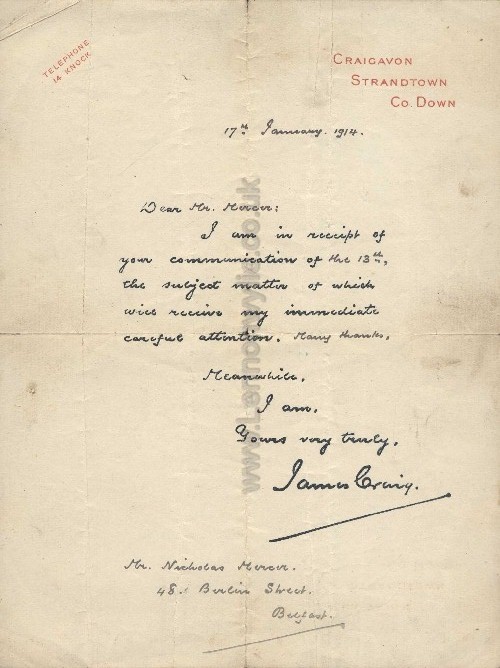 TELEPHONE
14 KNOCK
CRAIGAVON
STRANDTOWN
CO. DOWN
17th January. 1914.
Dear Mr. Mercer:
I am in receipt of
your communication of the 13th,
the subject matter of which
will receive my immediate
careful attention. Many thanks.
Meanwhile.
I am.
Yours very truly.
James Craig.
Mr. Nicholas Mercer.
48. Berlin Street.
Belfast.